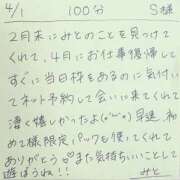 4/1 100分 S様
2月末にみとのことを見つけて
くれて、4月にお仕事復帰して
すぐに当日枠あるのに気付い
てネット予約して会いに来てくれて
凄く嬉しかったよ(*ˊᵕˋ*)早速、初
めて様限定パックも使ってくれて
ありがとう♡また気持ちいいことして
遊ぼうね!!
みと